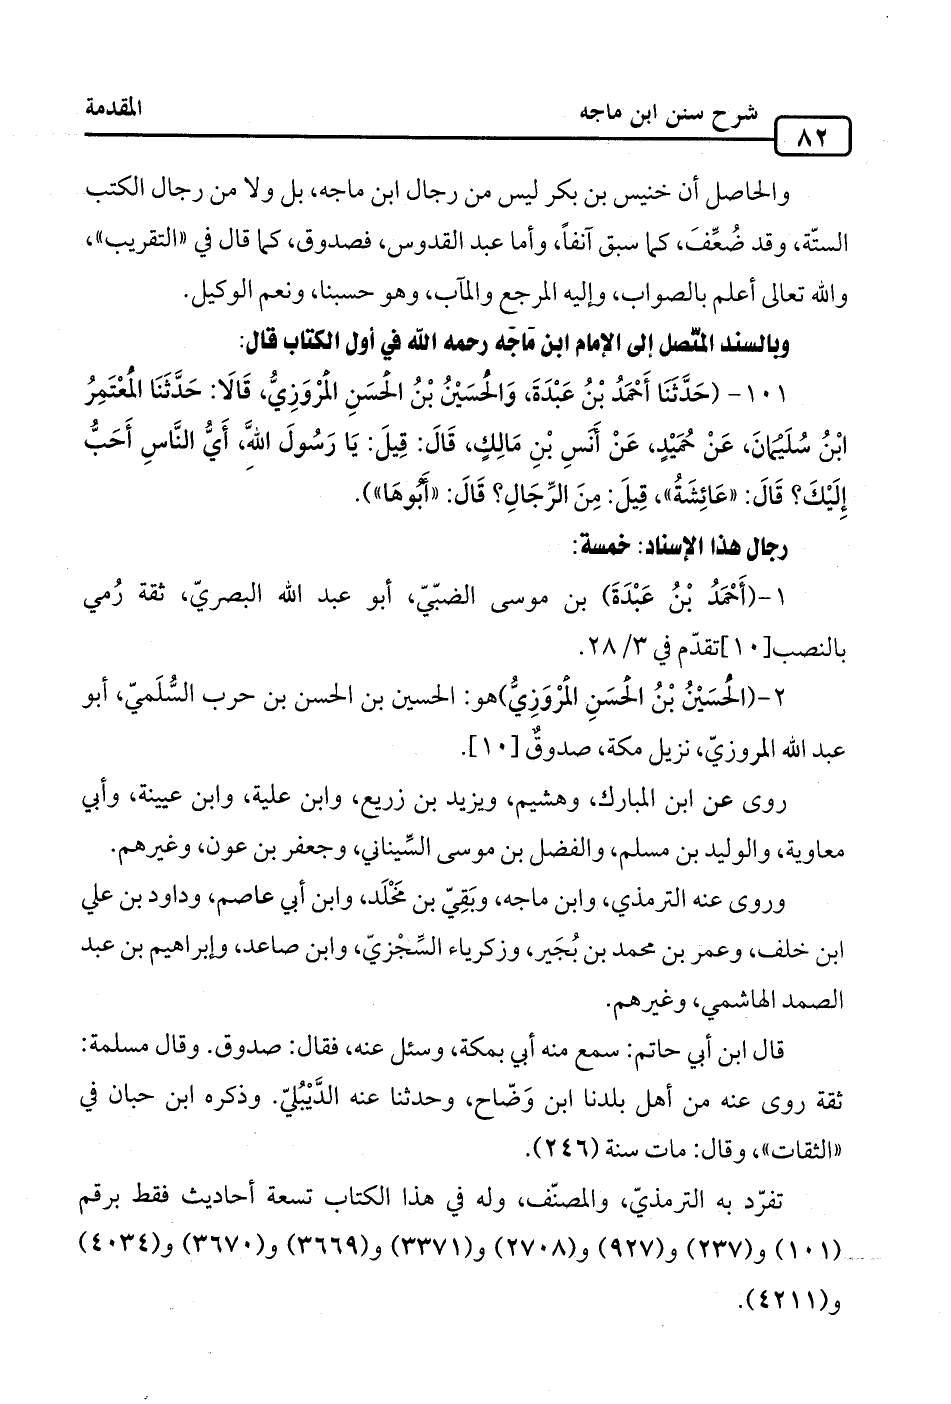 المقدمة
شرح سنن ابن ماجه
٨٢
والحاصل أن خنيس بن بكر ليس من رجال ابن ماجه، بل ولا من رجال الكتب
الستّة، وقد ضُعِّفَ، كما سبق آنفاً، وأما عبد القدوس، فصدوق، كما قال في «التقريب»،
والله تعالى أعلم بالصواب، وإليه المرجع والمآب، وهو حسبنا، ونعم الوكيل.
وبالسند المتّصل إلى الإمام ابن مَاجَه رحمه الله في أول الكتاب قال:
١٠١- (حَدَّثَنَا أَحْمَدُ بْنُ عَبْدَةَ، وَالْحُسَيْنُ بْنُ الْحَسَنِ الْمَرْوَزِيُّ، قَالَا: حَدَّثَنَا الْمُعْتَمِرُ
ابْنُ سُلَيْمَانَ، عَنْ حُمَيْدٍ، عَنْ أَنَسِ بْنِ مَالِكٍ، قَالَ: قِيلَ: يَا رَسُولَ اللهِ، أَيُّ النَّاسِ أَحَبُّ
إِلَيْكَ؟ قَالَ: «عَائِشَةُ»، قِيلَ: مِنَ الرِّجَالِ؟ قَالَ: «أَبُوهَا»).
رجال هذا الإسناد: خمسة:
١-(أَحْمَدُ بْنُ عَبْدَةَ) بن موسى الضبّيّ، أبو عبد الله البصريّ، ثقة رُمي
بالنصب[١٠]تقدّم في ٣/ ٢٨.
٢-(الْحُسَيْنُ بْنُ الْحَسَنِ الْمَرْوَزِيُّ)هو: الحسين بن الحسن بن حرب السُّلَميّ، أبو
عبد الله المروزيّ، نزيل مكة، صدوقٌ [١٠].
روى عن ابن المبارك، وهشيم، ويزيد بن زريع، وابن علية، وابن عيينة، وأبي
معاوية، والوليد بن مسلم، والفضل بن موسى السِّيناني، وجعفر بن عون، وغيرهم.
وروى عنه الترمذي، وابن ماجه، وبَقِيّ بن مَخْلَد، وابن أبي عاصم، وداود بن علي
ابن خلف، وعمر بن محمد بن بُجَير، وزكرياء السِّجْزيّ، وابن صاعد، وإبراهيم بن عبد
الصمد الهاشمي، وغيرهم.
قال ابن أبي حاتم: سمع منه أبي بمكة، وسئل عنه، فقال: صدوق. وقال مسلمة:
ثقة روى عنه من أهل بلدنا ابن وَضّاح، وحدثنا عنه الدَّيْبُليّ. وذكره ابن حبان في
«الثقات»، وقال: مات سنة (٢٤٦).
تفرّد به الترمذيّ، والمصنّف، وله في هذا الكتاب تسعة أحاديث فقط برقم
(١٠١) و(٢٣٧) و(٩٢٧) و(٢٧٠٨) و(٣٣٧١) و(٣٦٦٩) و(٣٦٧٠) و(٤٠٣٤)
و(٤٢١١).